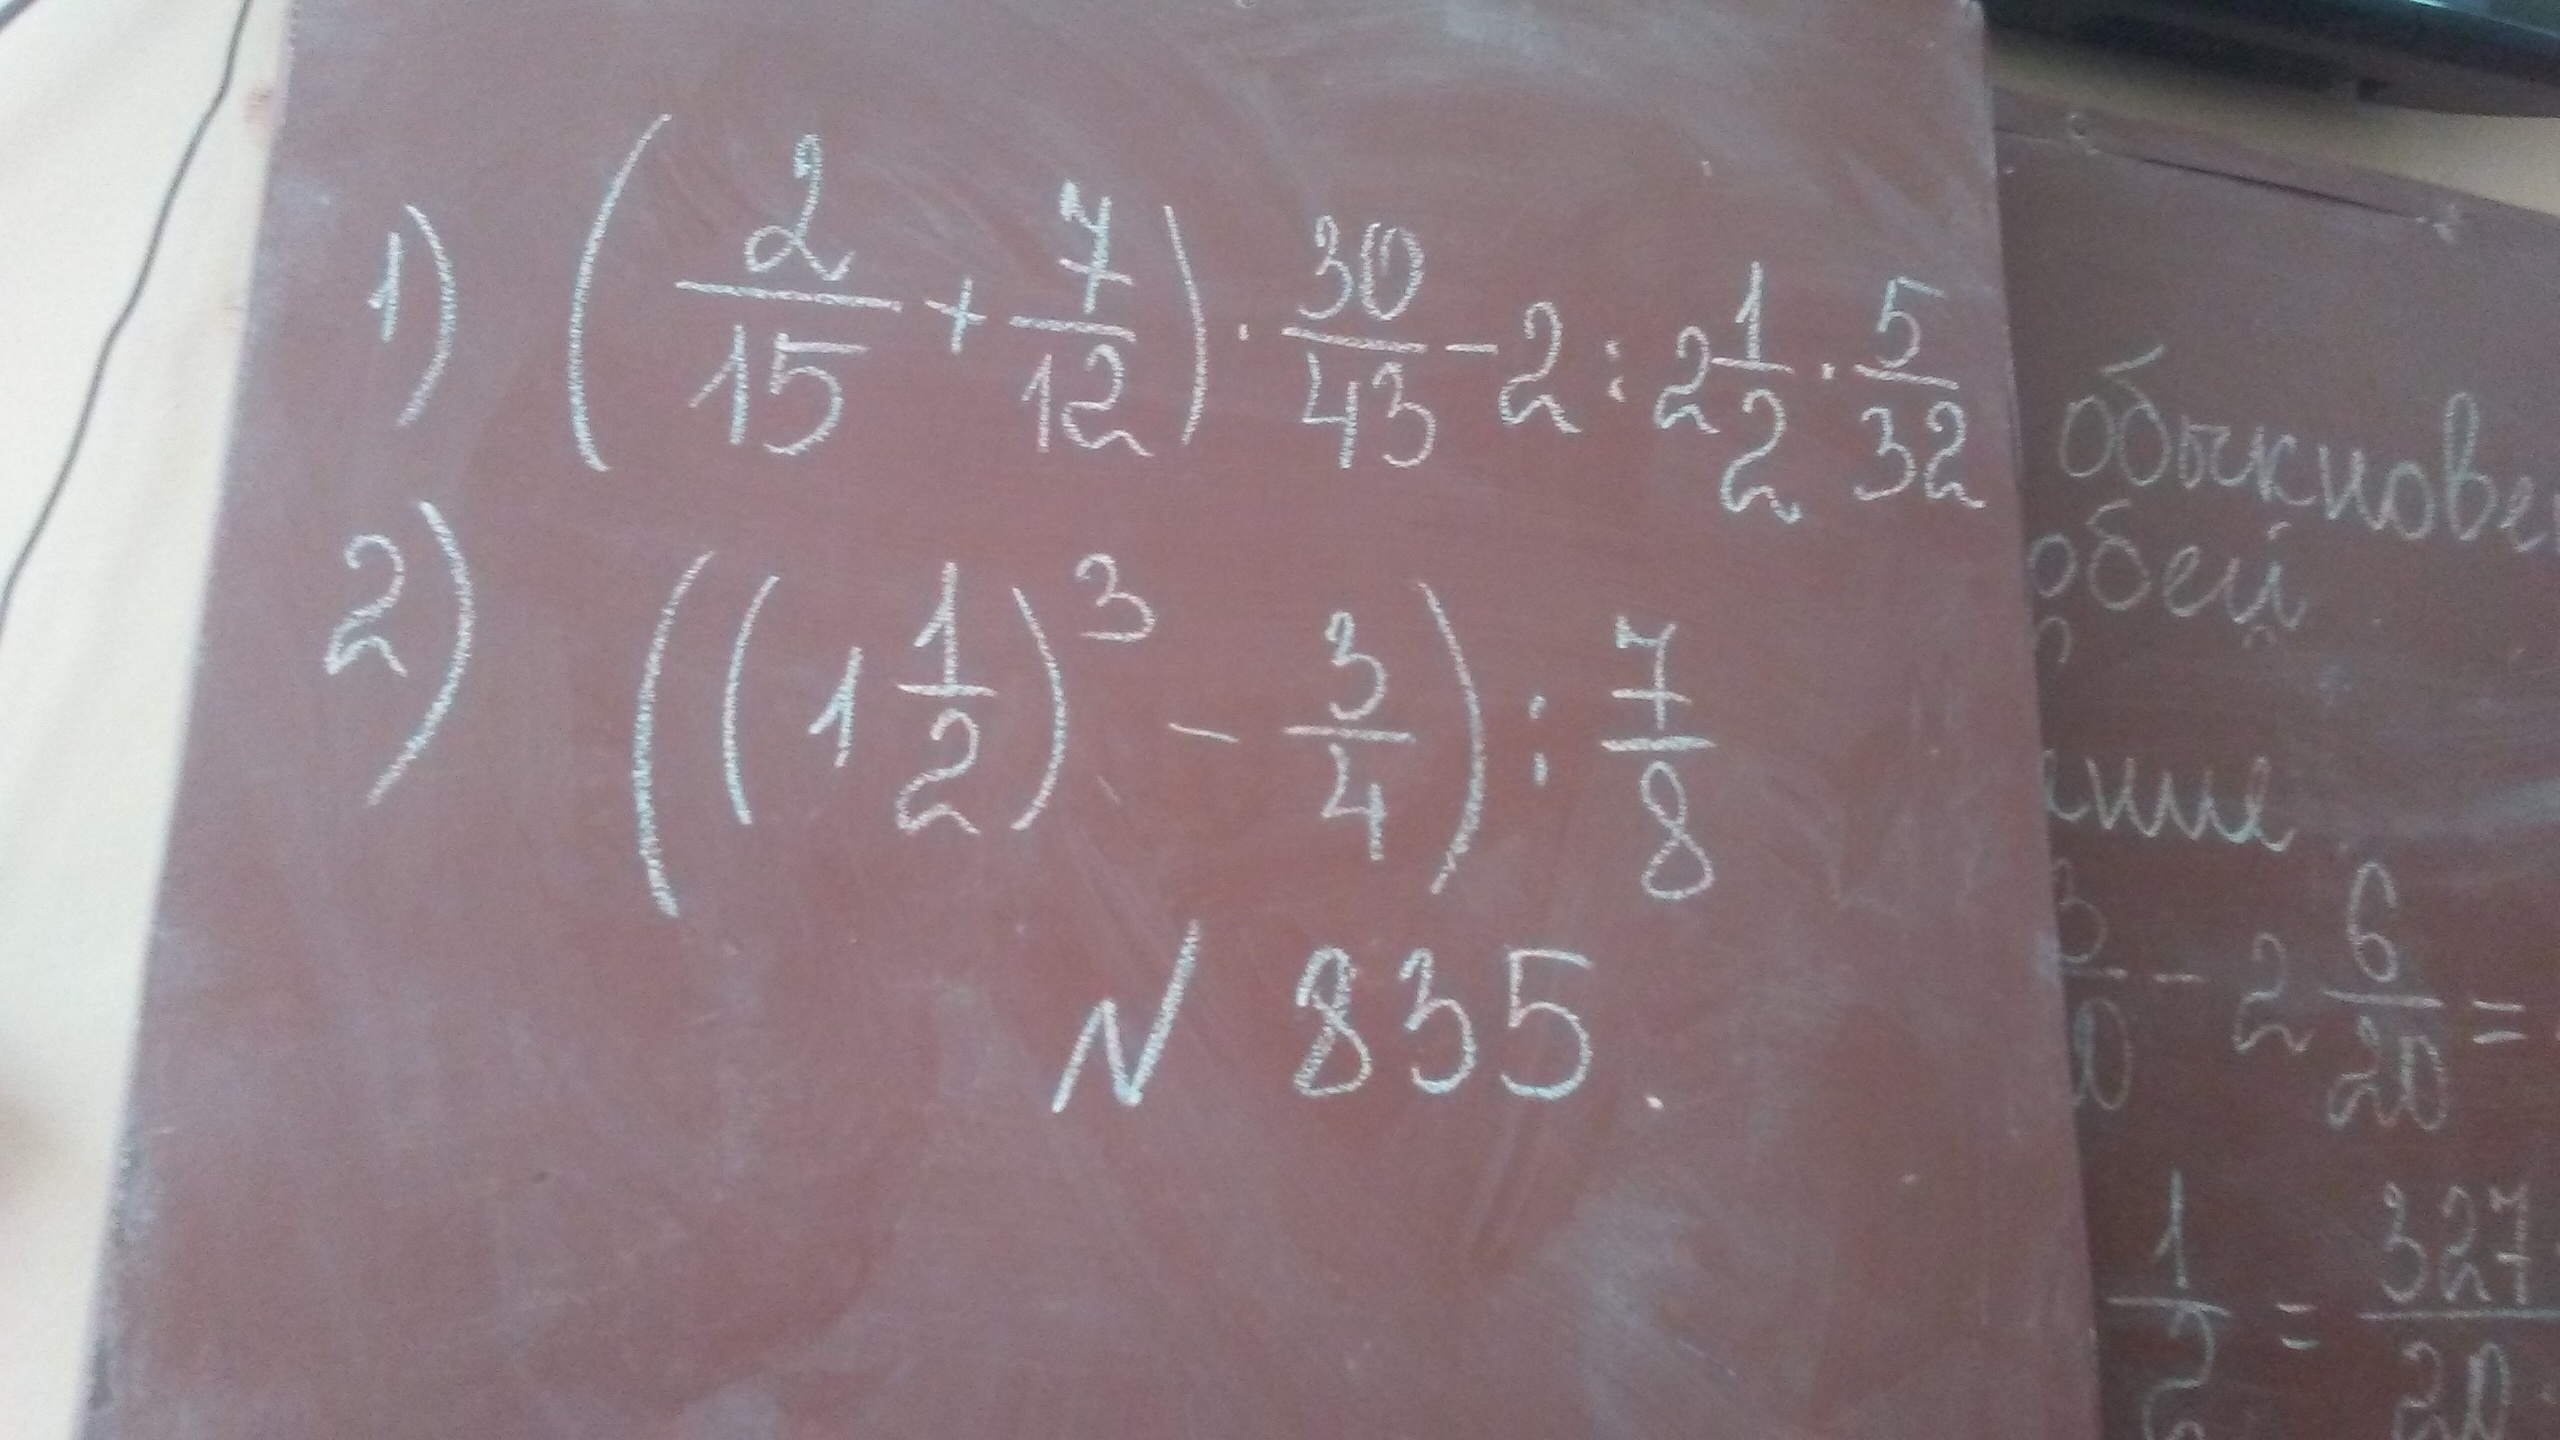 1) (2/15 + 7/12) · 30/43 - 2 : 2 1/2 · 5/32
2) ((1 1/2)^3 - 3/4) : 7/8
N 835.
обыкновен
обей
ение
- 2 6/20 =
1/2 = 327/20